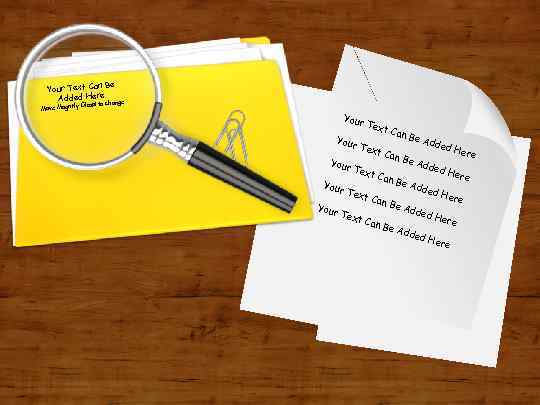 Your Text Can Be
Added Here
Move Magnify Glass to change
Your Text Can Be Added Here
Your Text Can Be Added Here
Your Text Can Be Added Here
Your Text Can Be Added Here
Your Text Can Be Added Here